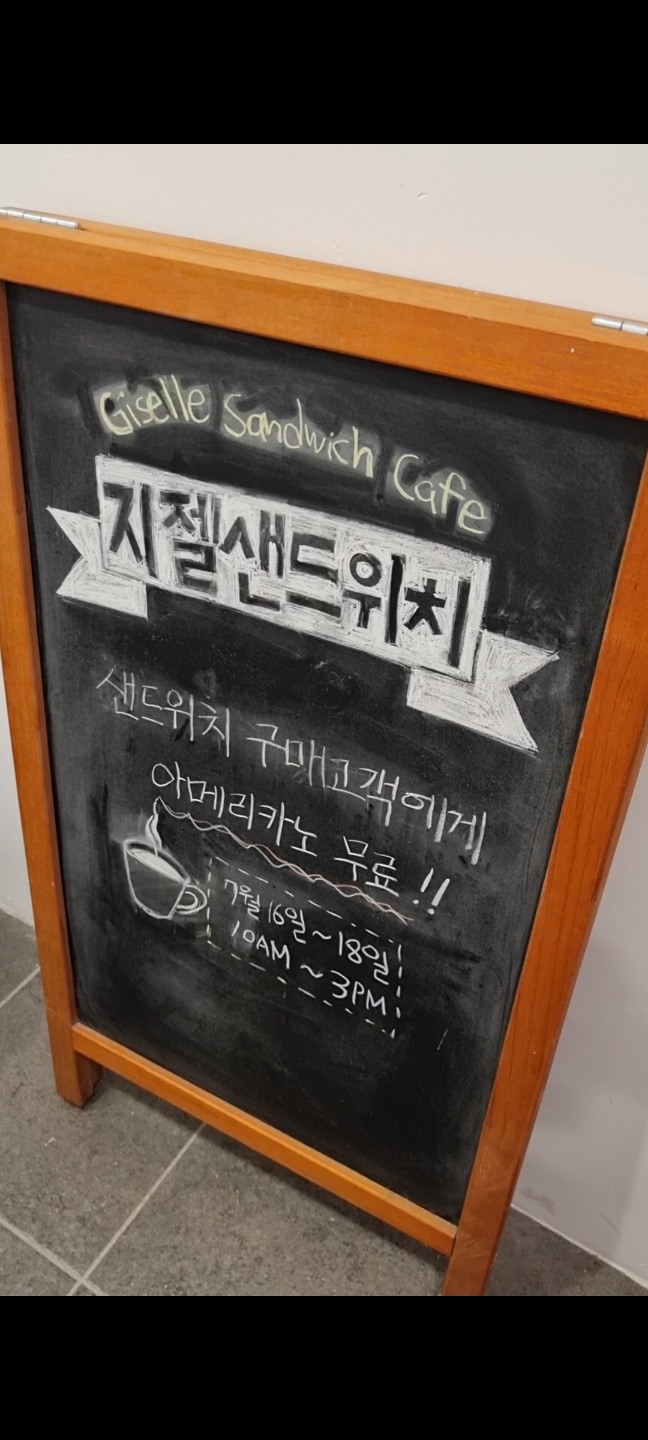 Giselle Sandwich Cafe
지젤샌드위치
샌드위치 구매고객에게
아메리카노 무료!!
7월 16일~18일
10AM ~ 3PM